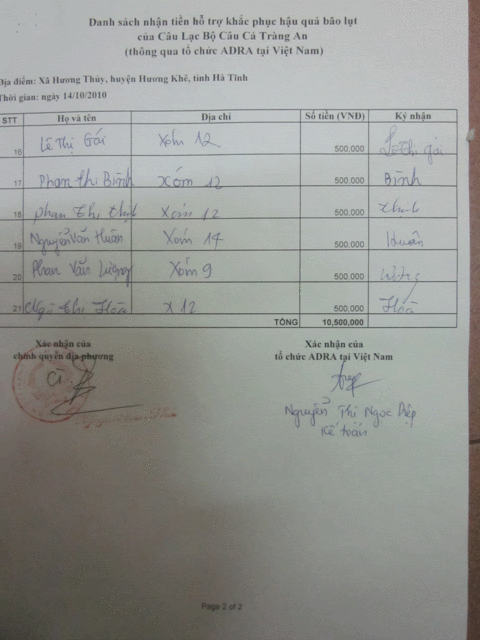 Danh sách nhận tiền hỗ trợ khắc phục hậu quả bão lụt
của Câu Lạc Bộ Câu Cá Tràng An
(thông qua tổ chức ADRA tại Việt Nam)
Địa điểm: Xã Hương Thủy, huyện Hương Khê, tỉnh Hà Tĩnh
Thời gian: ngày 14/10/2010
STT Họ và tên Địa chỉ Số tiền (VNĐ) Ký nhận
16 Lê Thị Gái Xóm 12 500,000 Lê thị gái
17 Phan thị Bình Xóm 12 500,000 Bình
18 phan thị Xóm 12 500,000
19 Nguyễn Văn Huân Xóm 14 500,000 Huân
20 Phan Văn Lượng Xóm 9 500,000
21 Ngô thị Hoà X 12 500,000 Hoà
TỔNG 10,500,000
Xác nhận của
chính quyền địa phương
Xác nhận của
tổ chức ADRA tại Việt Nam
Nguyễn Thị Ngọc Diệp
Kế toán
Page 2 of 2